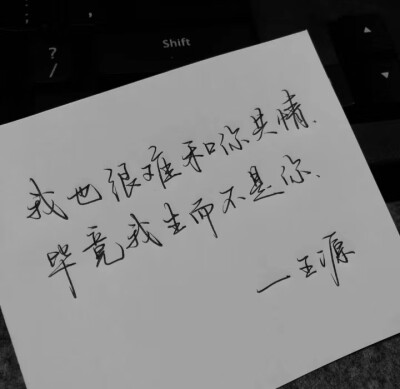 Shift
?
/
我也很难和你共情.
毕竟我生而不是你.
一王源